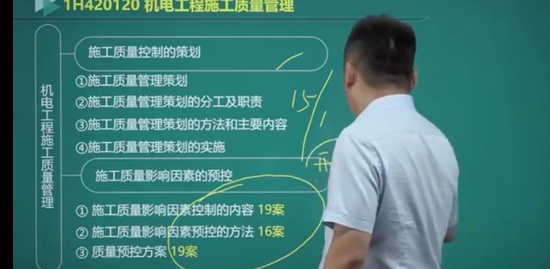 1H420120 机电工程施工质量管理
机电工程施工质量管理
施工质量控制的策划
①施工质量管理策划
②施工质量管理策划的分工及职责
③施工质量管理策划的方法和主要内容
④施工质量管理策划的实施
15/1
施工质量影响因素的预控
① 施工质量影响因素控制的内容 19案
② 施工质量影响因素预控的方法 16案
③ 质量预控方案 19案